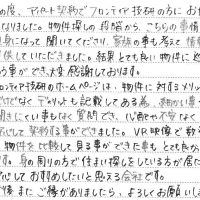 の度、アパート契約でフロンティア技研の方にお
なりました。物件探しの段階から、こちらの事情
身になって聞いてくださり、家族の事も考えて情
供していただきました。結果とても良い物件に
う事ができ、大変感謝しております。
ロンティア技研のホームページは、物件に対するメリッ
だけでなくデメリットも記載してある為、細かい事
聞きにくい事もなく質問でき、心配や不安なく
心して契約する事ができました。VR映像で数
物件を比較して見る事ができた事もとても良か
す。身の周りの方で住まい探しをしている方が居た
心しておすすめしたいと思える会社です。
後またご縁がありましたら、よろしくお願いし